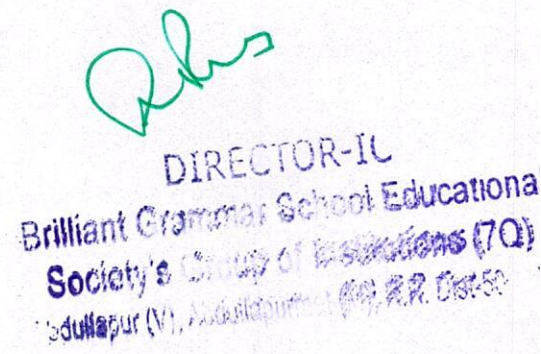 DIRECTOR-IC
Brilliant Grammar School Educational
Society's Group of Institutions (7Q)
Abdullapur (V), Abdullapurmet (M), R.R. Dist-50